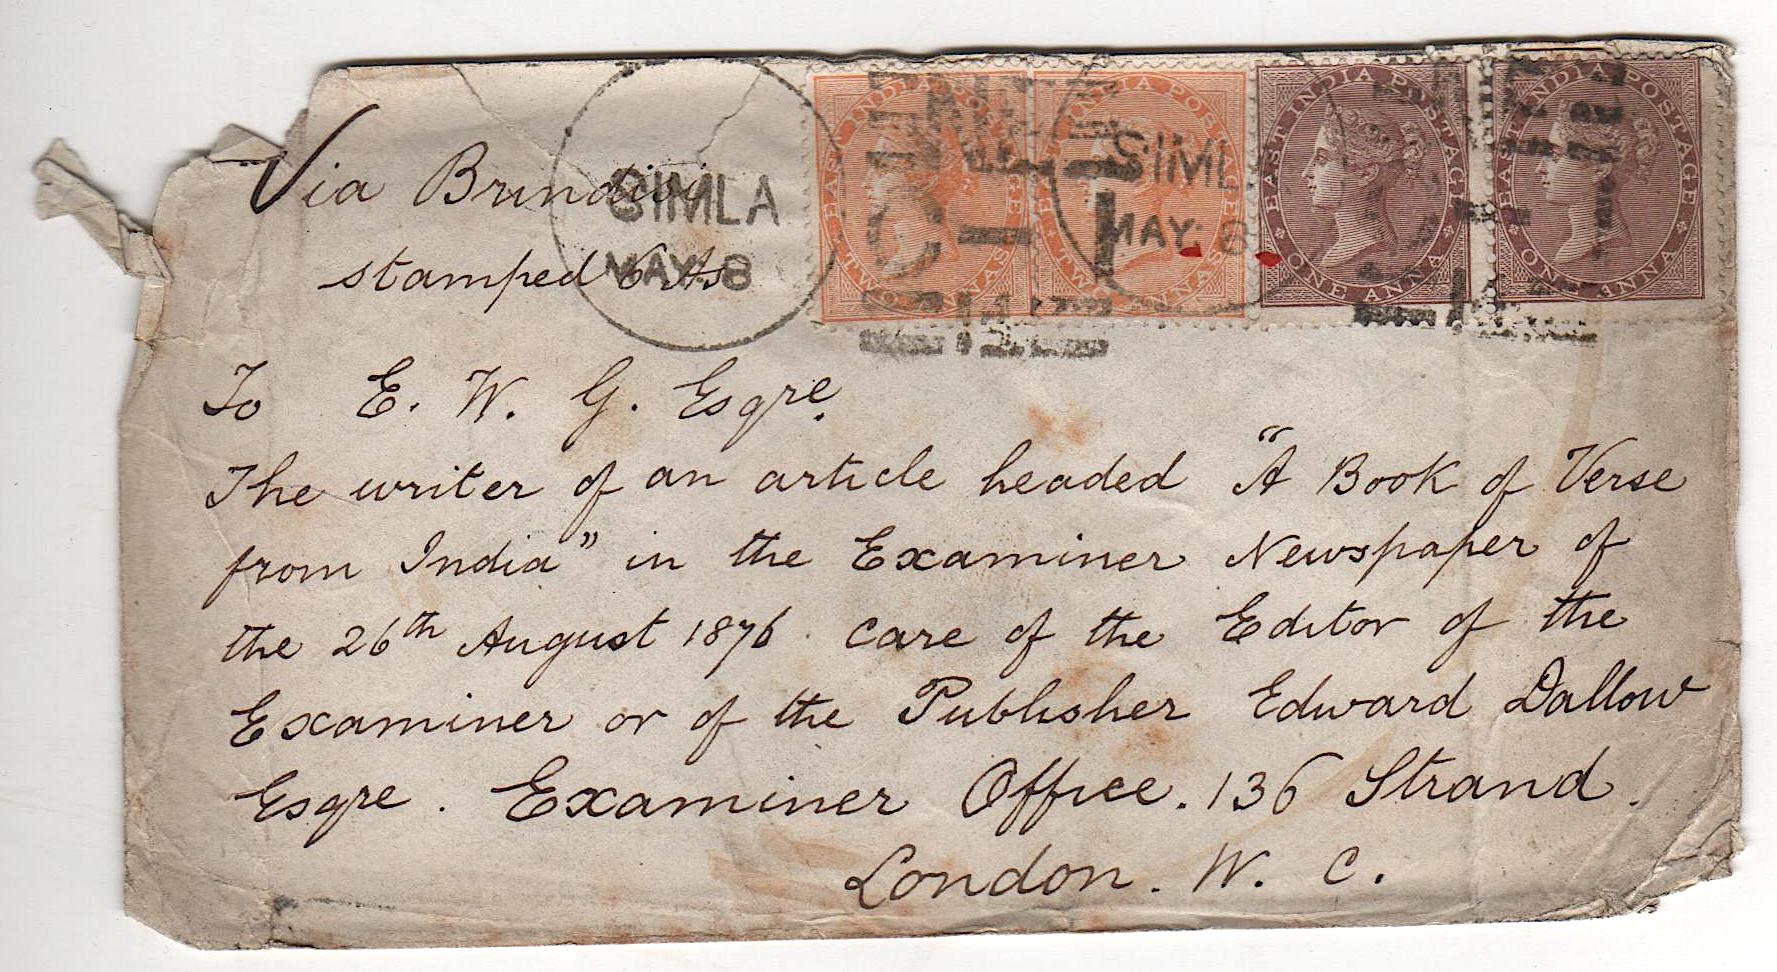 Via Brindisi
stamped 6 As
SIMLA
MAY. 8
EAST INDIA POSTAGE
TWO ANNAS
EAST INDIA POSTAGE
TWO ANNAS
SIMLA
MAY. 8
EAST INDIA POSTAGE
ONE ANNA
EAST INDIA POSTAGE
ONE ANNA
To E. W. G. Esqre.
The writer of an article headed "A Book of Verse
from India" in the Examiner Newspaper of
the 26th August 1876. care of the Editor of the
Examiner or of the Publisher Edward Dallow
Esqre. Examiner Office. 136 Strand.
London. W. C.